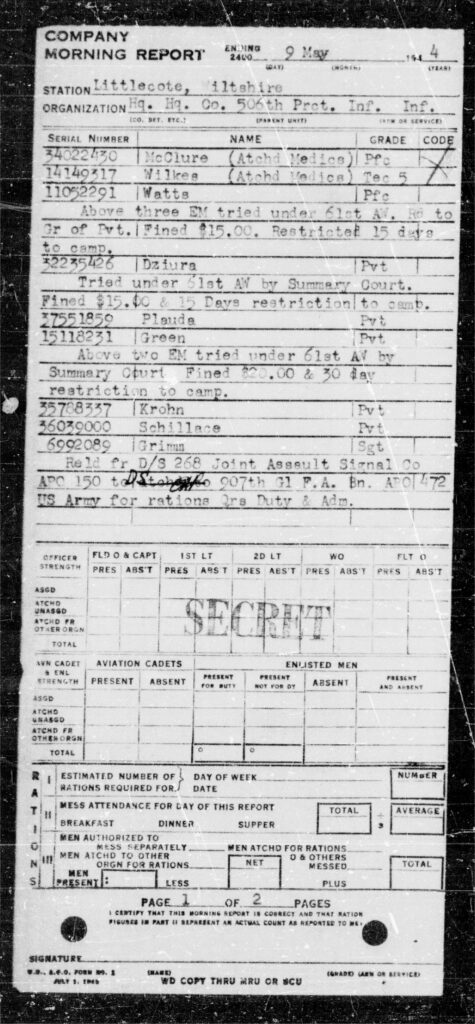 COMPANY
MORNING REPORT ENDING 2400 9 May 194 4
(DAY) (MONTH) (YEAR)
STATION Littlecote, Wiltshire
ORGANIZATION Hq. Hq. Co. 506th Prct. Inf. Inf.
(CO. DET. ETC.) (PARENT UNIT) (ARM OR SERVICE)
SERIAL NUMBER NAME GRADE CODE
34022430 McClure (Atchd Medics) Pfc
14149317 Wilkes (Atchd Medics) Tec 5
11052291 Watts Pfc
Above three EM tried under 61st AW. Rd to
Gr of Pvt. Fined $15.00. Restricted 15 days
to camp.
32235426 Dziura Pvt
Tried under 61st AW by Summary Court.
Fined $15.00 & 15 Days restriction to camp.
37551859 Plauda Pvt
15118231 Green Pvt
Above two EM tried under 61st AW by
Summary Court Fined $20.00 & 30 day
restriction to camp.
35788337 Krohn Pvt
36039000 Schillace Pvt
6992089 Grimm Sgt
Reld fr D/S 268 Joint Assault Signal Co
APO 150 to DS 907th Gl F.A. Bn. APO 472
US Army for rations Qrs Duty & Adm.
OFFICER STRENGTH FLD O & CAPT 1ST LT 2D LT WO FLT O
PRES ABS'T PRES ABS'T PRES ABS'T PRES ABS'T PRES ABS'T
ASGD
ATCHD UNASGD
ATCHD FR OTHER ORGN
TOTAL
SECRET
AVN CADET & ENL STRENGTH AVIATION CADETS ENLISTED MEN
PRESENT ABSENT PRESENT FOR DUTY PRESENT NOT FOR DY ABSENT PRESENT AND ABSENT
ASGD
ATCHD UNASGD
ATCHD FR OTHER ORGN
TOTAL
RATIONS
I ESTIMATED NUMBER OF RATIONS REQUIRED FOR: DAY OF WEEK DATE NUMBER
II MESS ATTENDANCE FOR DAY OF THIS REPORT TOTAL ÷ 3 AVERAGE
BREAKFAST DINNER SUPPER
III MEN AUTHORIZED TO MESS SEPARATELY MEN ATCHD FOR RATIONS
MEN ATCHD TO OTHER ORGN FOR RATIONS NET O & OTHERS MESSED TOTAL
MEN PRESENT: LESS PLUS
PAGE 1 OF 2 PAGES
I CERTIFY THAT THIS MORNING REPORT IS CORRECT AND THAT RATION
FIGURES IN PART II REPRESENT AN ACTUAL COUNT AS REPORTED TO ME:
SIGNATURE
W.D., A.G.O. FORM NO. 1 (NAME) (GRADE) (ARM OR SERVICE)
WD COPY THRU MRU OR SCU